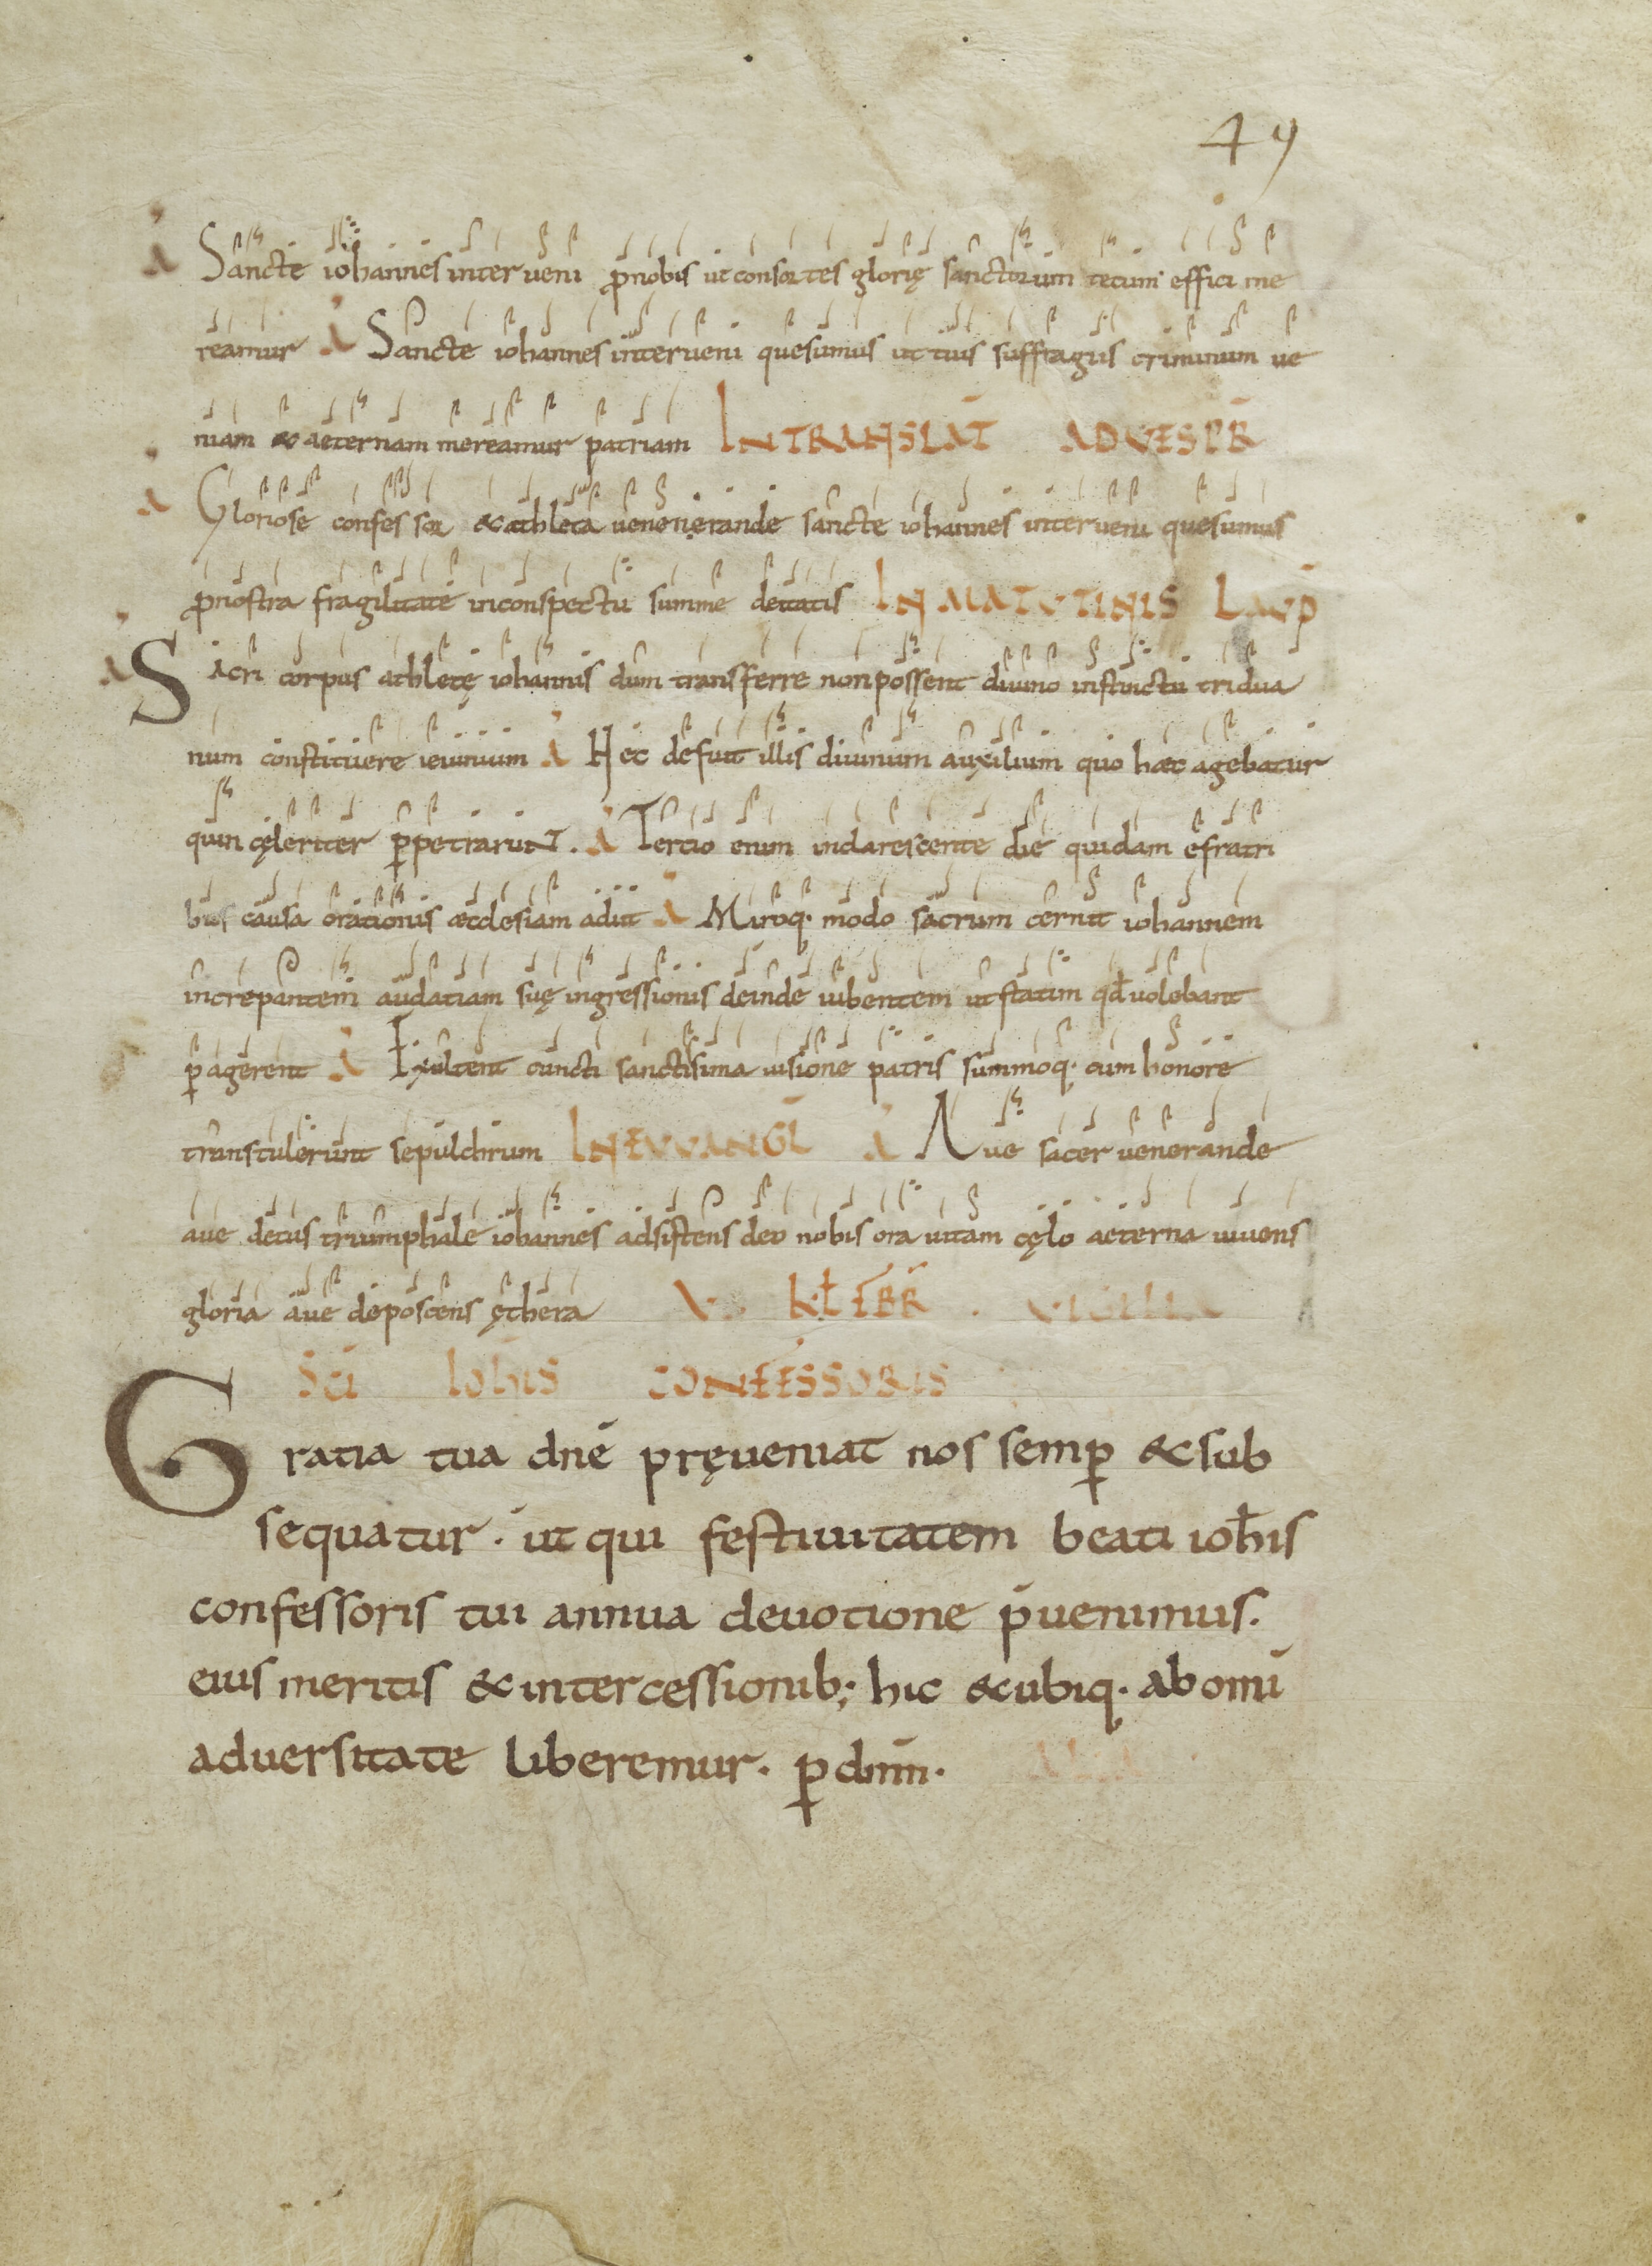 49
A Sancte iohannes interueni p̄nobis ut consortes glorię sanctorum tecum effici me
reamur A Sancte iohannes interueni quesumus ut tuis suffragiis criminum ue
niam & aeternam mereamur patriam INTRANSLAT̄ ADVESPR̄
A Gloriose confessor & athleta uenenerande sancte iohannes interueni quesumus
p̄nostra fragilitate inconspectu summe deitatis IN MATVTINIS LAVD̄
A Sacri corpus athletę iohannis dum transferre non possent diuino instinctu tridua
num constituere ieiunium A Nec defuit illis diuinum auxilium quo haec agebatur
quin cęleriter p̱petrarunt. A Tertio enim indarescente die quidam efratri
bus causa orationis aecclesiam adiit A Miroq· modo sacrum cernit iohannem
increpantem audatiam suę ingressionis deinde iubentem ut statim qđ uolebant
p̱agerent A Exultent cuncti sanctissima uisione patris summoq· cum honore
transtulerunt sepulchrum IN EVVANGL̄ A Aue sacer uenerande
aue decus triumphale iohannes adsistens deo nobis ora uitam cęlo aeterna uiuens
gloria aue deposcens ęthera V. KL̄ FEBR̄. VIGILIA
SCĪ IOHIS CONFESSORIS
Gratia tua dn̄e pręueniat nos semp̱ & sub
sequatur. ut qui festiuitatem beati ioh̄is
confessoris tui annua deuotione p̄uenimus.
eius meritis & intercessionib; hic & ubiq· ab omī
aduersitate liberemur. p̱ dnm̄.